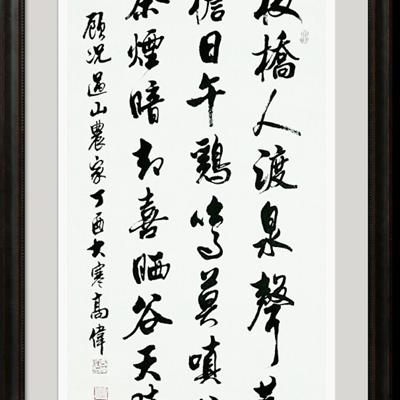 板橋人渡泉聲
檐日午鷄鳴莫嗔
茶煙暗却喜晒谷天晴
顧況過山農家丁酉大寒高偉